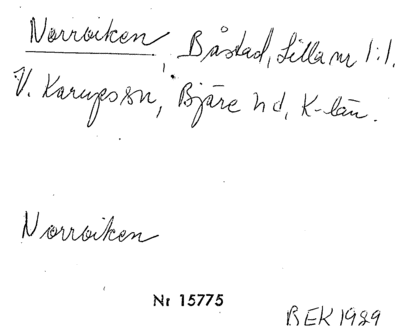 Norrviken, Båstad, Lilla nr 1:1.
V. Karups sn, Bjäre hd, K-län.
Norrviken
Nr 15775
BEK 1989